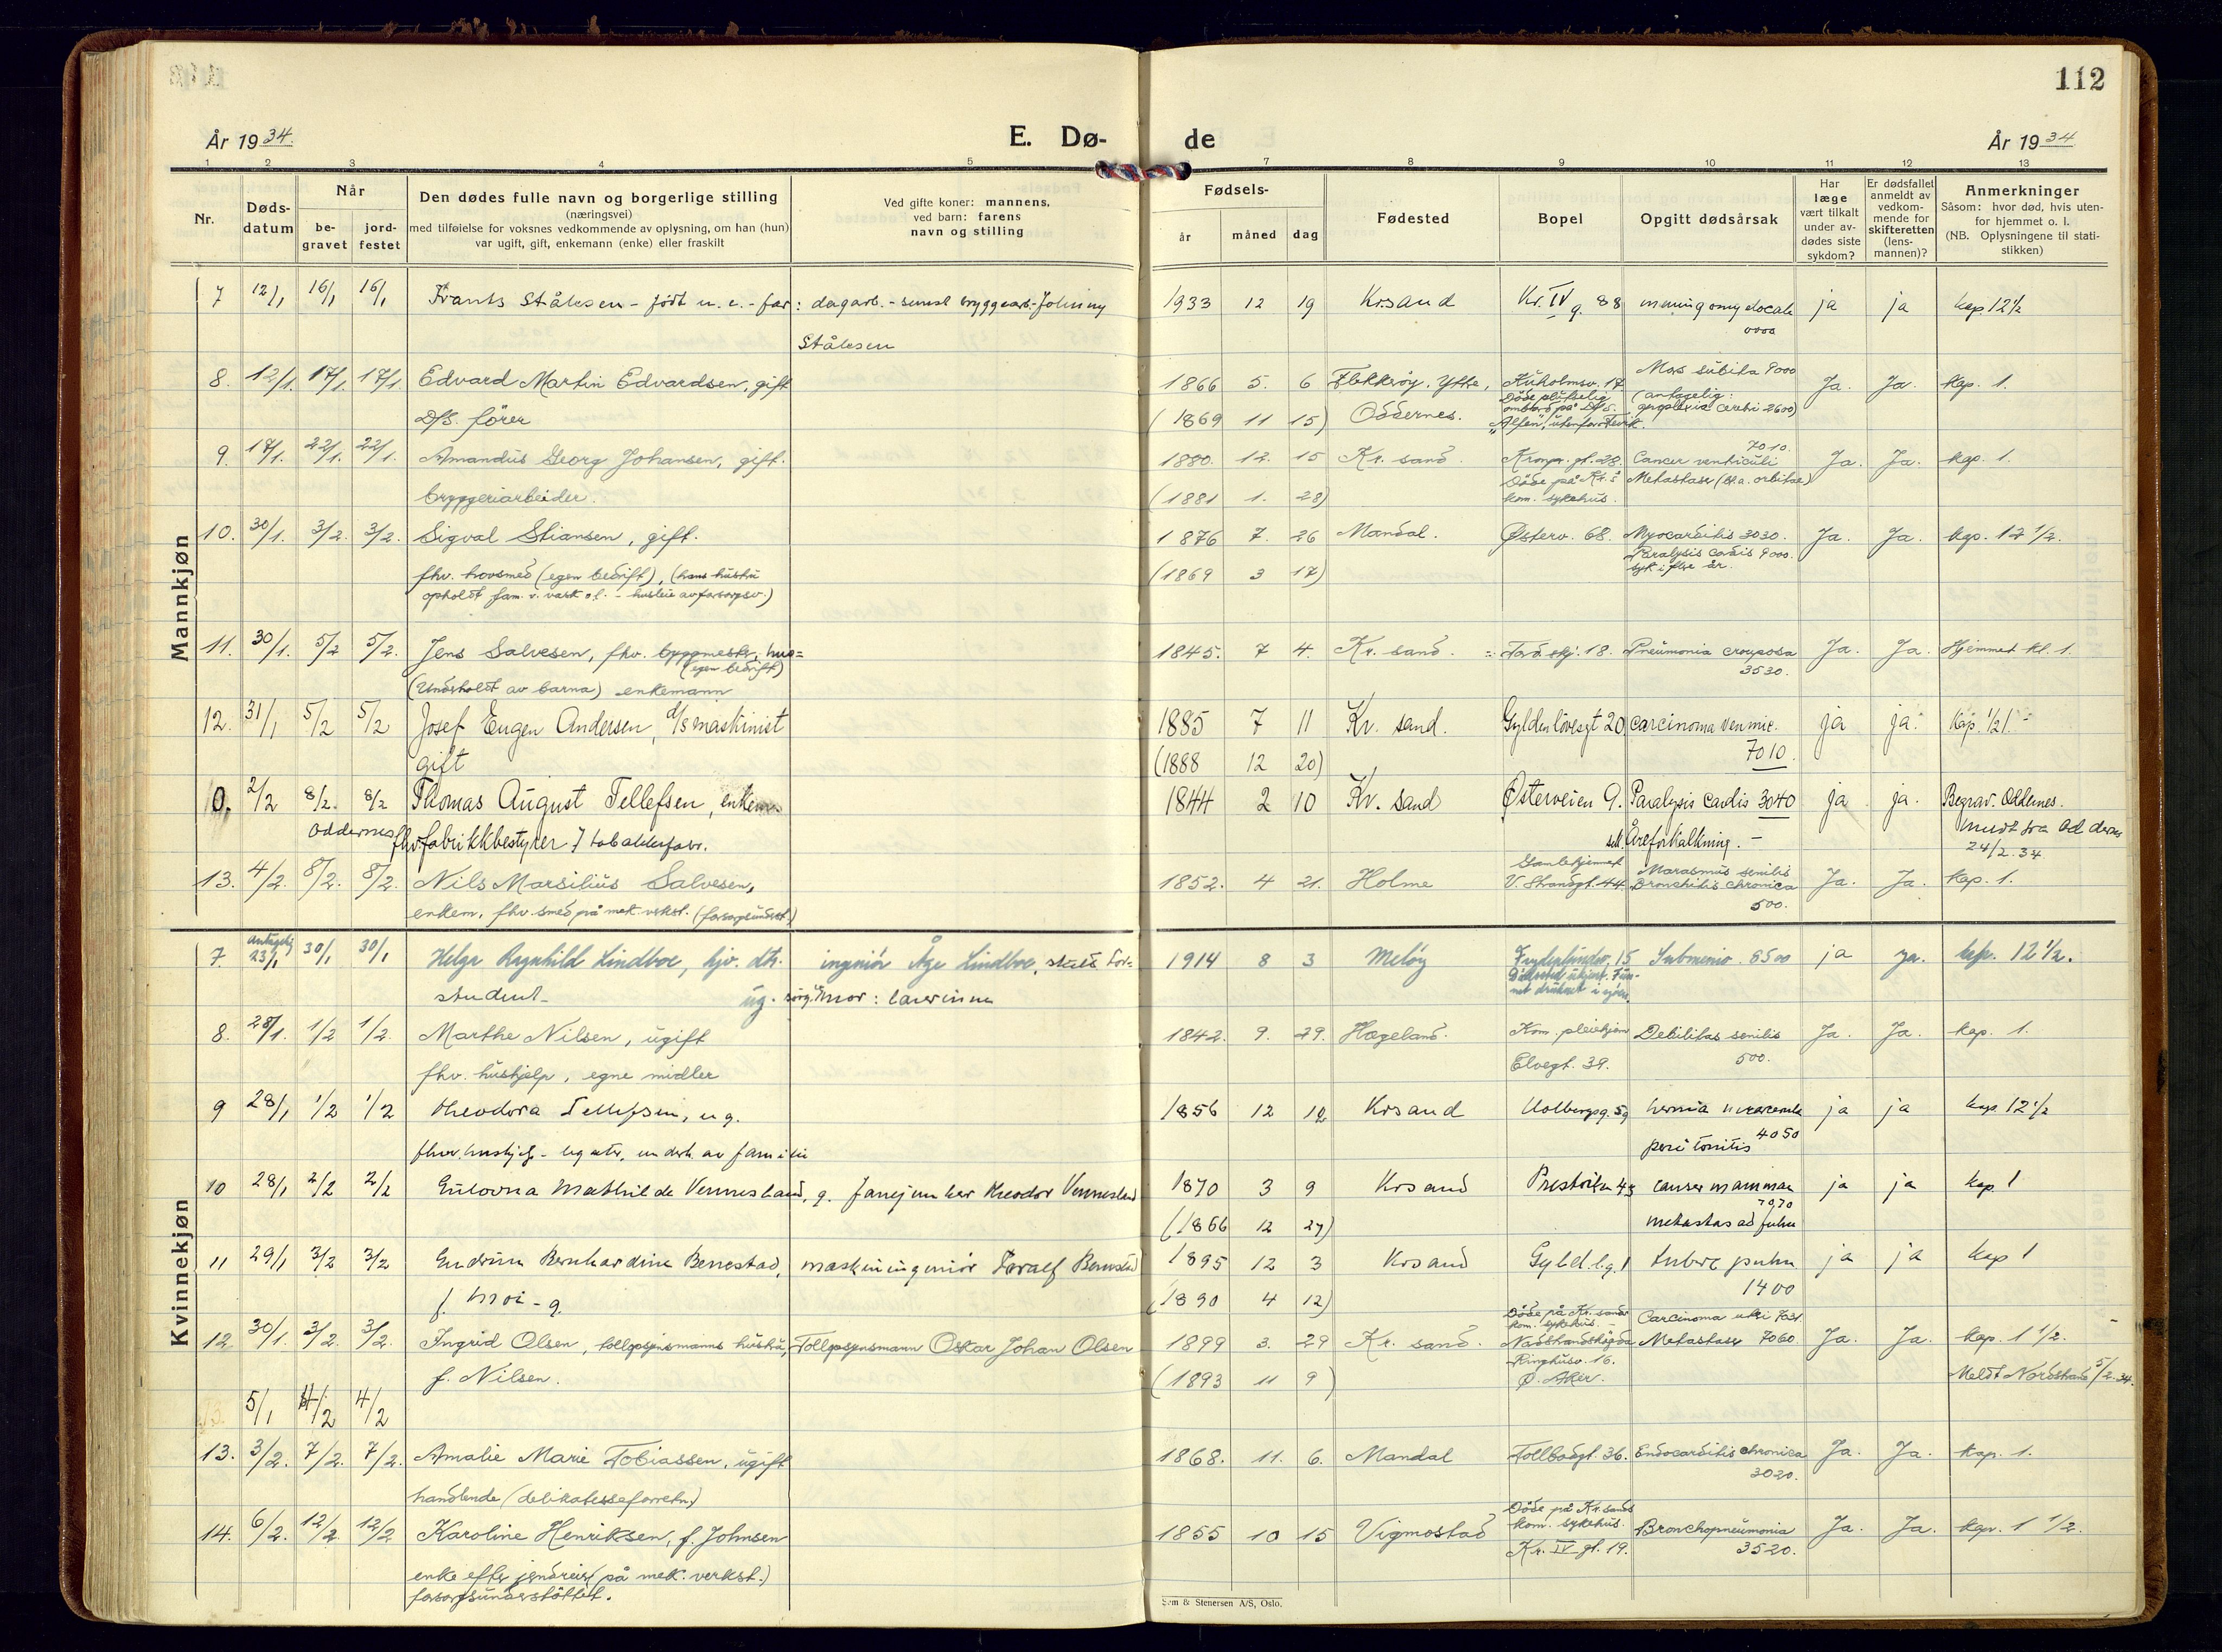 112
År 1934.
E. Dø-
de
År 1934
1 2 3 4 5 7 8 9 10 11 12 13
Nr.
Døds-
datum
Når
be-
gravet
jord-
festet
Den dødes fulle navn og borgerlige stilling
(næringsvei)
med tilføielse for voksnes vedkommende av oplysning, om han (hun)
var ugift, gift, enkemann (enke) eller fraskilt
Ved gifte koner: mannens,
ved barn: farens
navn og stilling
Fødsels-
år måned dag
Fødested
Bopel
Opgitt dødsårsak
Har
læge
vært tilkalt
under av-
dødes siste
sykdom?
Er dødsfallet
anmeldt av
vedkom-
mende for
skifteretten
(lens-
mannen)?
Anmerkninger
Såsom: hvor død, hvis uten-
for hjemmet o. l.
(NB. Oplysningene til stati-
stikken)
Mannkjøn
7 12/1 16/1 16/1 Frants Stålesen - født u. e. - far: dagarb. - sunst bryggearb. Johnny 1933 12 19 Krsand Kr. IV g. 88 ja ja kap. 12 1/2
Stålesen
8. 12/1. 17/1. 17/1. Edvard Martin Edvardsen, gift 1866 5. 6 Flekkrøy, Ytte, Kuholmsv. 17 Mors subita 9000 Ja. Ja. Kap. 1.
D/S. fører (1869 11 15) Oddernes. Døde plutselig ombord på D/S. "Alfen", utenfor (antagelig: apoplexia cerebri 2600)
9. 17/1. 22/1. 22/1. Amandus Georg Johansen, gift. 1880. 12. 15 Kr. sand Kronpr. gt. 28. Cancer ventriculi 7010 Ja. Ja. kap. 1.
bryggeriarbeider. (1881 1. 28) Døde på Kr. s kom. sykehus. Metastase (bl. a. orbitae)
10. 30/1. 3/2. 3/2. Sigval Stiansen, gift. 1876 7. 26 Mandal. Østerv. 68. Myocarditis 3030. Ja. Ja. kap. 12 1/2.
fhv. hovsmed (egen bedrift), (hans hustru (1869 3 17) Paralysis cordis 9000.
opholdt fam. v. vask o.l. - husleie av forsorgsv.) syk i flere år.
11. 30/1. 5/2 5/2. Jens Salvesen, fhv. byggmestr, hus= 1845. 7 4. Kr. sand. Pneumonia crouposa Ja. Ja. Hjemmet kl. 1.
(egen bedrift) 3530.
(Undholdt av barna) enkemann
12. 31/1 5/2 5/2 Josef Eugen Andersen, d/s maskinist 1885 7 11 Kr. sand. Gyldenløvesgt 20 carcinoma ja ja. Kap. 1/2 1.
gift (1888 12 20) 7010.
0. 2/2 8/2. 8/2 Thomas August Tellefsen, enkem. 1844 2 10 Kr. sand Østerveien 9. Paralysis cordis 3040 ja ja. Begrav. Oddernes.
Oddernes fhv fabrikkbestyrer / tobakksfabr. Åreforkalkning. - Oddernes
24/2. 34
13. 4/2. 8/2. 8/2. Nils Marsilius Salvesen, 1852. 4 21. Holme Gamlehjemmet V. Strandgt. 44 Marasmus senilis Bronchitis chronica Ja. Ja. Kap. 1.
enkem. fhv. smed på mek. vekst. (forsorgsundst.) 500.
Kvinnekjøn
7. antagelig 23/1 30/1 30/1 Helga Ragnhild Lindboe, hjv. dtr. ingeniør Åge Lindboe, 1914 8 3 Meløy 15 Submersio. 8500 ja ja. kap. 12 1/2.
student - ug. mor: lærerinne
8. 28/1. 1/2 1/2. Marthe Nilsen, ugift 1842. 9. 29. Hægeland. Kom. pleiehjem Debilitas senilis Ja. Ja. kap. 1.
fhv. hushjelp, egne midler Elvegt. 39. 500.
9 28/1 1/2 1/2 Theodora Tellefsen, ug. 1856 12 12 Krsand Holbergsg. 59 hernia ja ja kap. 12 1/2
fhv. hushjelp - legater, underh. av familie peritonitis 4050
10 28/1 2/2 2/2 Gulovna Mathilde Vennesland, g. Theodor Vennesland 1870 3 9 Krsand 43 cancer mammae ja ja kap. 1
(1866 12 27) 7070 metastas ad pulm
11 29/1 3/2 3/2 Gudrun Bernhardine Bennestad, maskiningeniør Toralf Bennestad 1895 12 3 Krsand Gyld.l.g. 1 tuberc pulm ja ja kap 1
f. Moi - g. (1890 4 12) 1400
12 30/1. 3/2. 3/2. Ingrid Olsen, tollopsynsmanns hustru, Tollopsynsmann Oskar Johan Olsen 1899 3. 29 Kr. sand. Døde på Kr. sands kom. sykehus. - Carcinoma uteri Metastaser 7060. Ja. Ja. kap. 1 1/2.
f. Nilsen. (1893 11 9) Ringhusv. 16. Ø. Aker. Meldt Nordstrand 5/2. 34.
13. 5/1 4/2 4/2
13. 3/2. 7/2. 7/2. Amalie Marie Tobiassen, ugift 1868. 11. 6. Mandal Tollbodgt. 36. Endocarditis chronica Ja. Ja. kap. 1.
handlende (delikatesseforretn.) 3020.
14. 6/2. 12/2. 12/2 Karoline Henriksen, f. Johnsen 1855 10 15 Vigmostad Døde på Kr. sands kom. sykehus. Kr. IV gt. 19. Bronchopneumonia Ja. Ja. kap. 1 1/2.
enke efter jerndreier (på mek. verkst.) 3520.
forsorgsunderstøttet.
Sem & Stenersen A/S, Oslo.